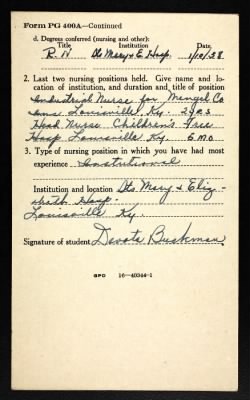 Form PG 400A—Continued
d. Degrees conferred (nursing and other):
Title Institution Date
R. N Sts Mary & E. Hosp. 1/10/38
2. Last two nursing positions held. Give name and lo-
cation of institution, and duration and title of position
Industrial Nurse for Mengel Co
Louisville, Ky. 2 yrs
Head Nurse Children's Free
Hosp Louisville Ky 6 mo
3. Type of nursing position in which you have had most
experience Institutional
Institution and location Sts. Mary & Eliz-
abeth Hosp.
Louisville Ky.
Signature of student Devota Buskman
GPO 16—40344-1